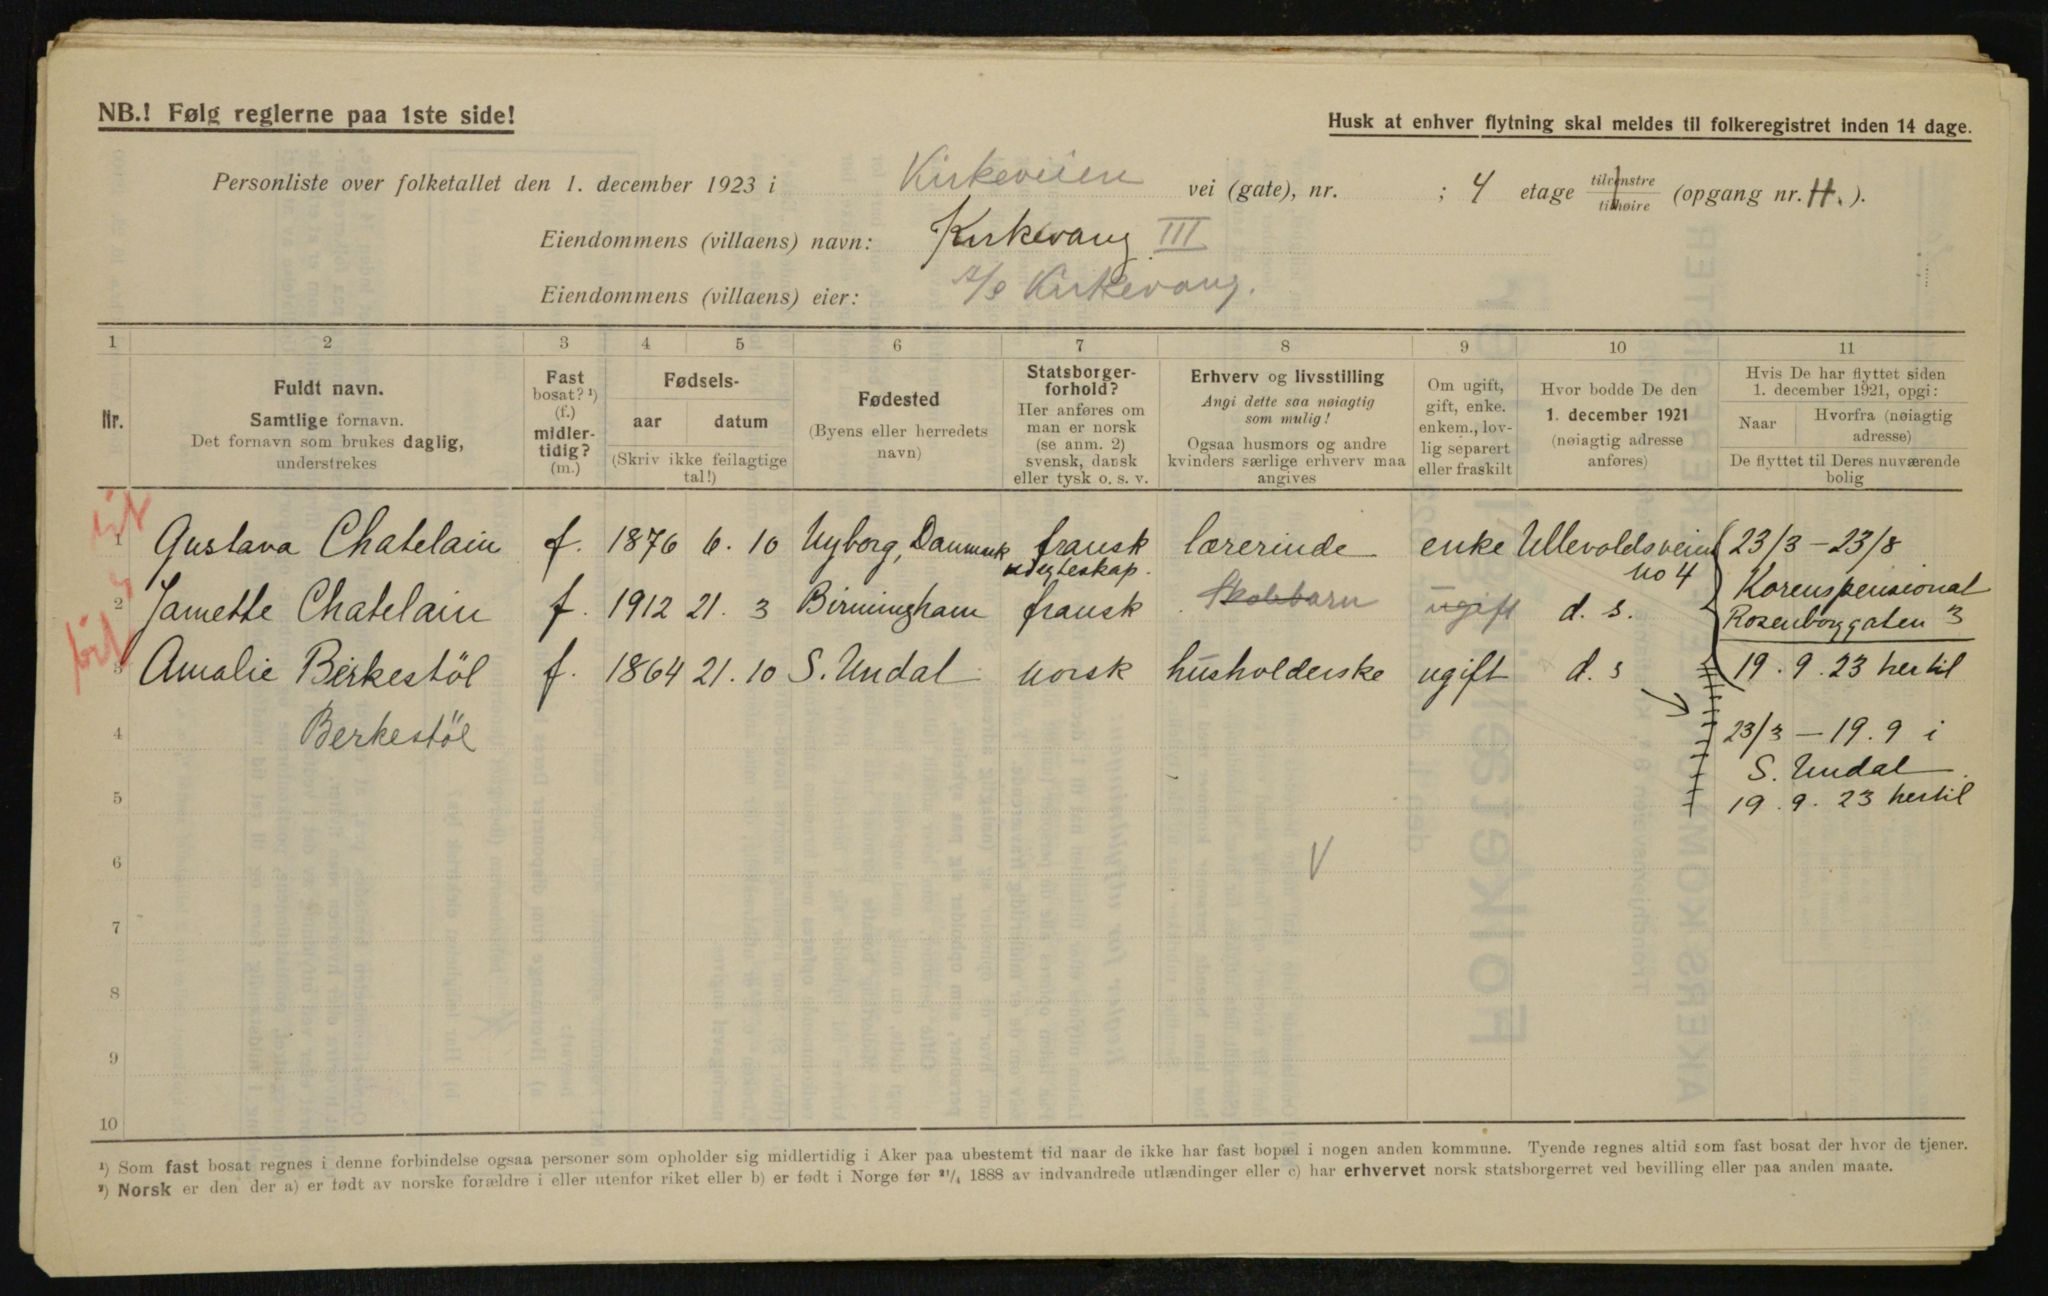 NB.! Følg reglerne paa 1ste side!
Husk at enhver flytning skal meldes til folkeregistret inden 14 dage.
Personliste over folketallet den 1. december 1923 i Kirkeveien vei (gate), nr. ; 4 etage tilvenstre tilhøire (opgang nr. H.).
Eiendommens (villaens) navn: Kirkevang III
Eiendommens (villaens) eier: A/S Kirkevang.
1 2 3 4 5 6 7 8 9 10 11
Nr.
Fuldt navn.
Samtlige fornavn.
Det fornavn som brukes daglig,
understrekes
Fast
bosat? ¹)
(f.)
midler-
tidig?
(m.)
Fødsels-
aar datum
(Skriv ikke feilagtige
tal!)
Fødested
(Byens eller herredets
navn)
Statsborger-
forhold?
Her anføres om
man er norsk
(se anm. 2)
svensk, dansk
eller tysk o. s. v.
Erhverv og livsstilling
Angi dette saa nøiagtig
som mulig!
Ogsaa husmors og andre
kvinders særlige erhverv maa
angives
Om ugift,
gift, enke.
enkem., lov-
lig separert
eller fraskilt
Hvor bodde De den
1. december 1921
(nøiagtig adresse
anføres)
Hvis De har flyttet siden
1. december 1921, opgi:
Naar Hvorfra (nøiagtig
adresse)
De flyttet til Deres nuværende
bolig
1 Gustava Chatelain f. 1876 6. 10 Nyborg, Danmark fransk lærerinde enke Ullevoldsveien 23/3 – 23/8
v. egteskap. no 4 Korenspensional
2 Jamette Chatelain f. 1912 21. 3 Birmingham fransk Skolebarn ugift d. s. Rosenborggaten 3
3 Amalie Birkestöl f. 1864 21. 10 S. Undal norsk husholderske ugift d. s 19. 9. 23 hertil
4 Berkestöl 23/3 – 19. 9 i
S. Undal.
5 19. 9. 23 hertil
6 V
7
8
9
10
¹) Som fast bosat regnes i denne forbindelse ogsaa personer som opholder sig midlertidig i Aker paa ubestemt tid naar de ikke har fast bopæl i nogen anden kommune. Tyende regnes altid som fast bosat der hvor de tjener.
²) Norsk er den der a) er født av norske forældre i eller utenfor riket eller b) er født i Norge før ²¹/₄ 1888 av indvandrede utlændinger eller c) har erhvervet norsk statsborgerret ved bevilling eller paa anden maate.